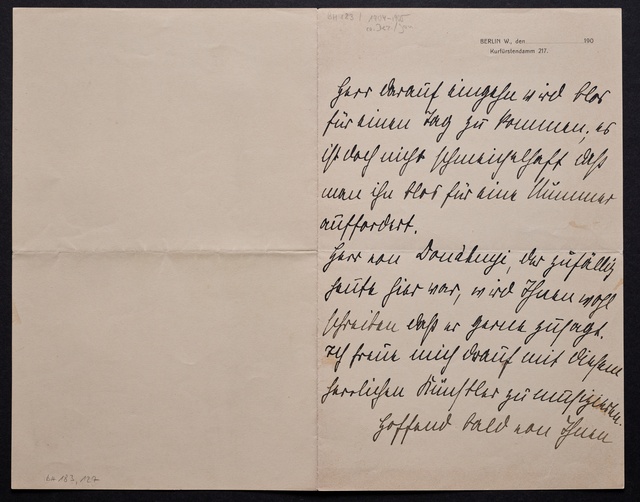 BERLIN W., den 190
Kurfürstendamm 217.
Herr darauf eingehn wird blos
für einen Tag zu kommen; es
ist doch nicht schmeichelhaft daß
man ihn blos für eine Nummer
auffordert.
Herr von Donátnyi, der zufällig
heute hier war, wird Ihnen wohl
schreiben daß er gerne zusagt.
Ich freue mich drauf mit diesem
herrlichen Künstler zu musizieren.
Hoffend bald von Ihnen
183, 127